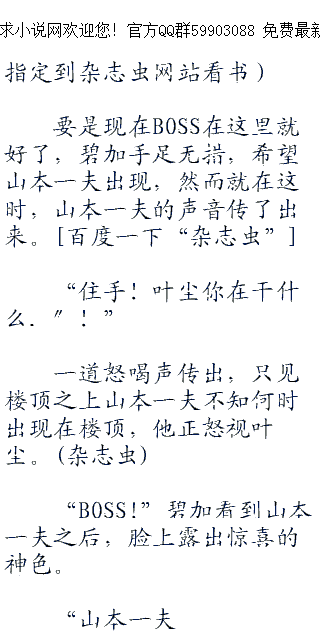 求小说网欢迎您! 官方QQ群59903088 免费最新
指定到杂志虫网站看书)
要是现在BOSS在这里就
好了，碧加手足无措，希望
山本一夫出现，然而就在这
时，山本一夫的声音传了出
来。[百度一下“杂志虫”]
“住手！叶尘你在干什
么.〃！”
一道怒喝声传出，只见
楼顶之上山本一夫不知何时
出现在楼顶，他正怒视叶
尘。(杂志虫)
“BOSS!”碧加看到山本
一夫之后，脸上露出惊喜的
神色。
“山本一夫